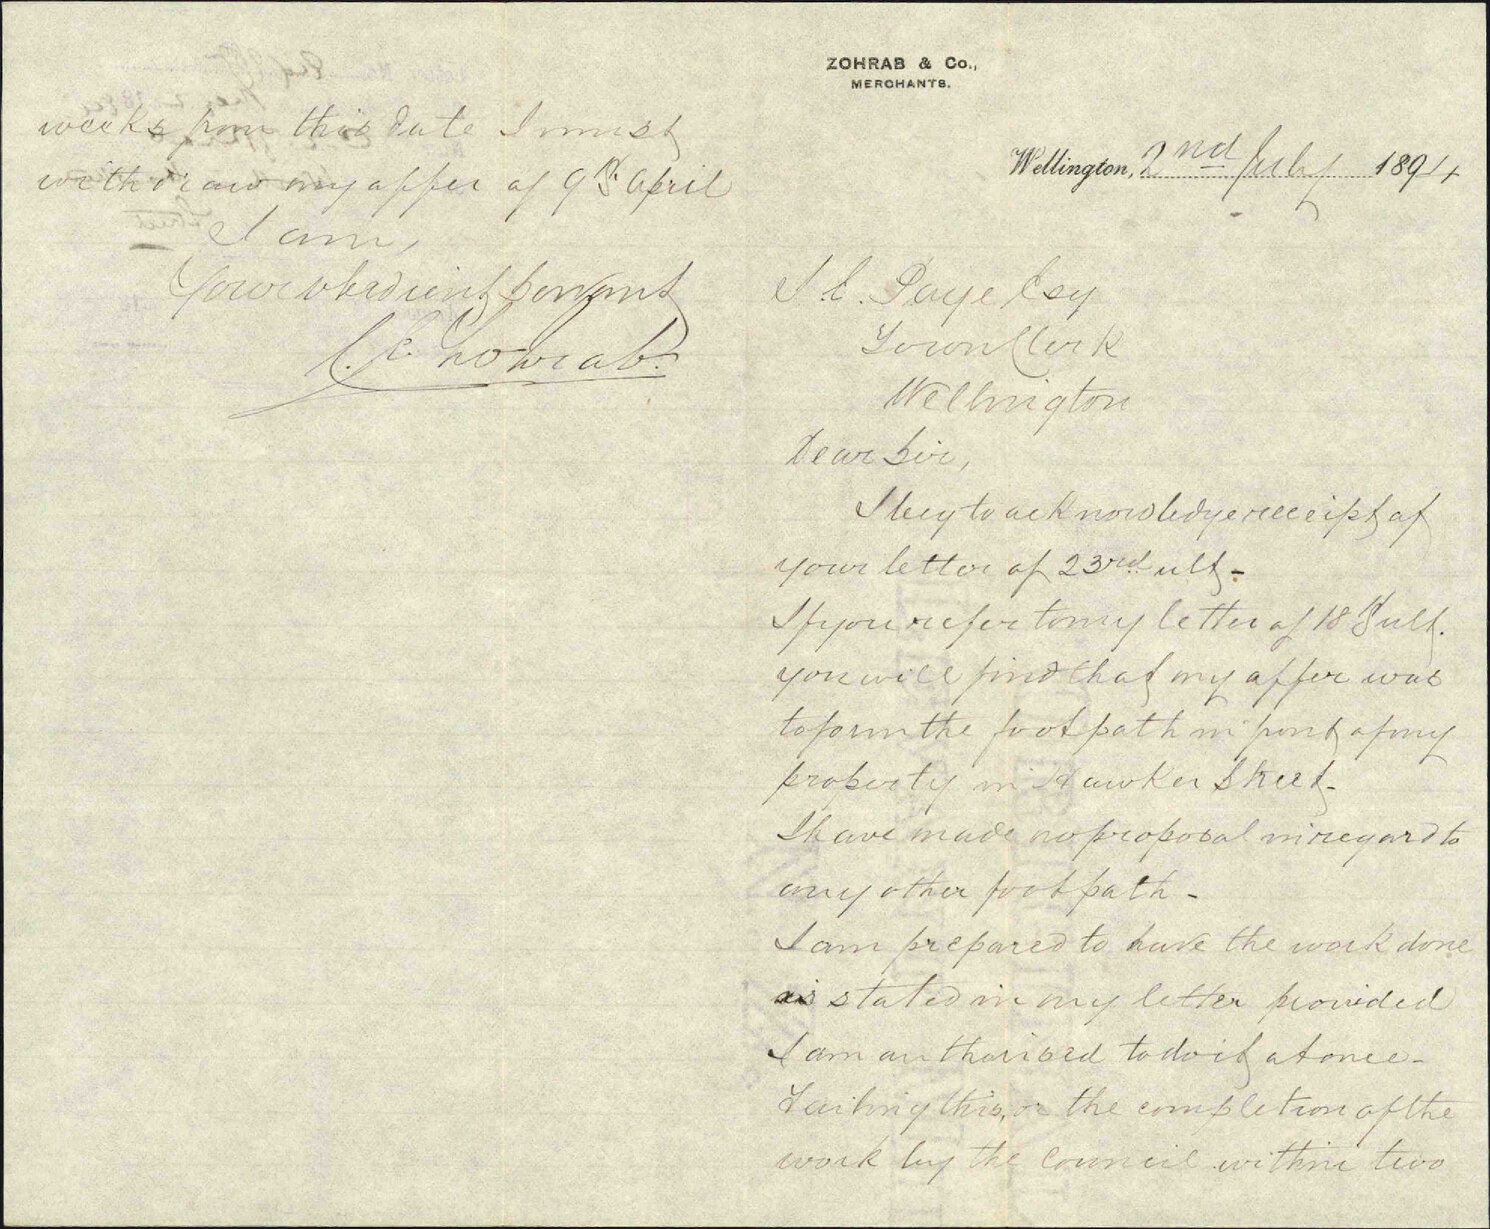 ZOHRAB & Co.,
MERCHANTS.
Wellington, 2nd July 1894
J. C. Page Esq
Town Clerk
Wellington
Dear Sir,
I beg to acknowledge receipt of
your letter of 23rd ult -
If you refer to my letter of 18th ult.
you will find that my offer was
to form the footpath in front of my
property in Hawker Street -
I have made no proposal in regard to
any other footpath -
I am prepared to have the work done
as stated in my letter provided
I am authorised to do it at once -
Failing this, or the completion of the
work by the Council within two
weeks from this date I must
withdraw my offer of 9th April
I am,
Your obedient Servant
C. E. Zohrab.